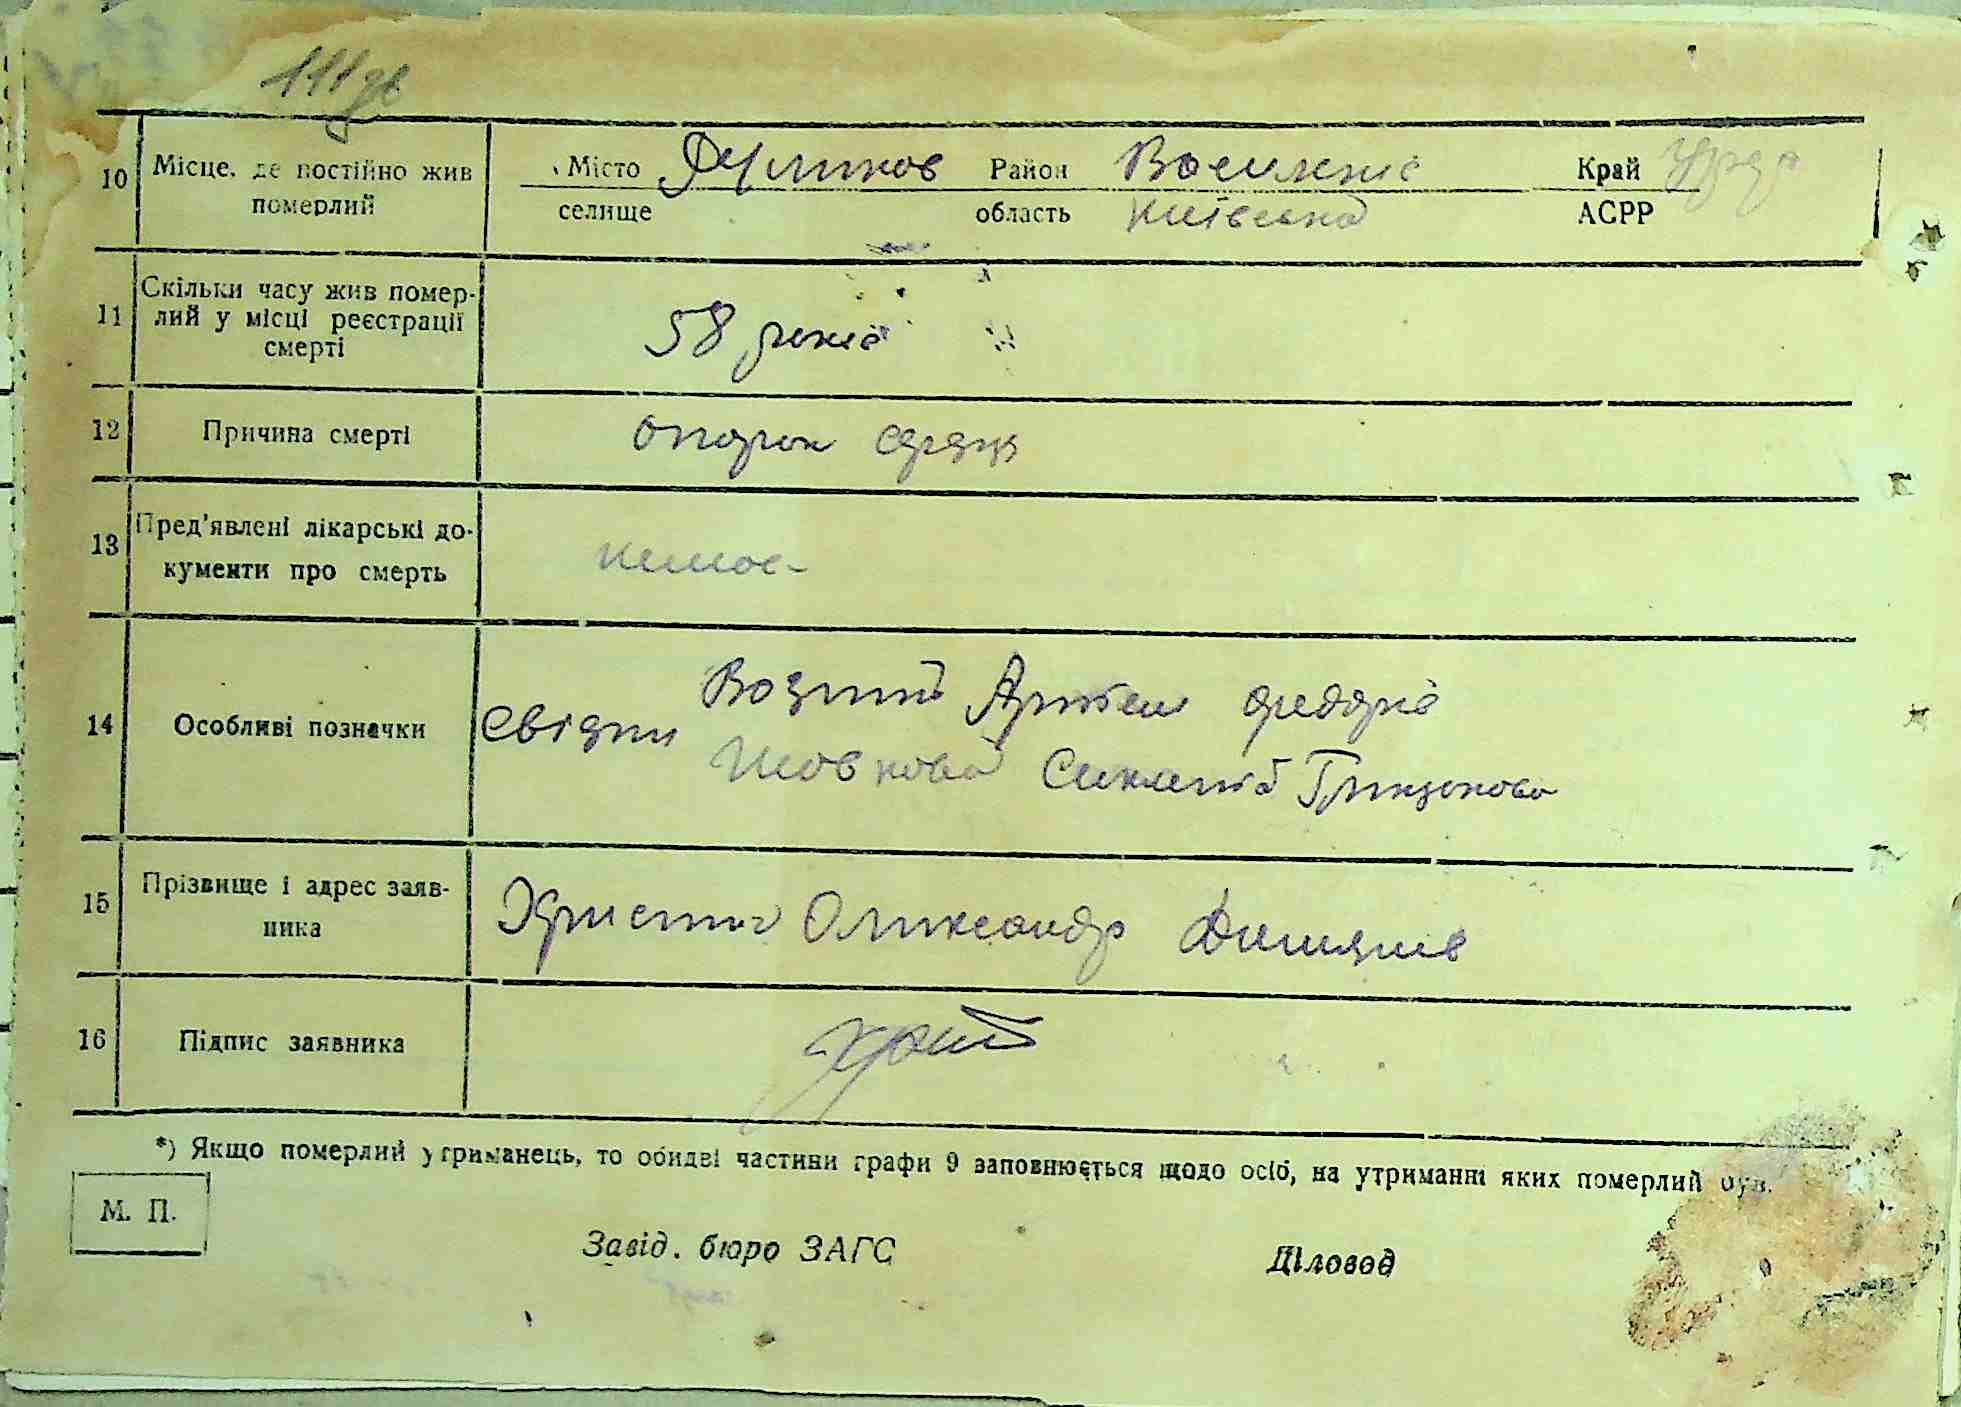 111зв
10 Місце, де постійно жив померлий Місто селище Район Край
область Київська АСРР
11 Скільки часу жив помер-
лий у місці реєстрації
смерті 58 років
12 Причина смерті опорок серця
13 Пред'явлені лікарські до-
кументи про смерть немає
14 Особливі позначки Свідки Возний Артем
Шовкова
15 Прізвище і адрес заяв-
ника Олександр
16 Підпис заявника
*) Якщо померлий утриманець, то обидві частини графи 9 заповнюється щодо осіб, на утриманні яких померлий був.
М. П.
Завід. бюро ЗАГС Діловод